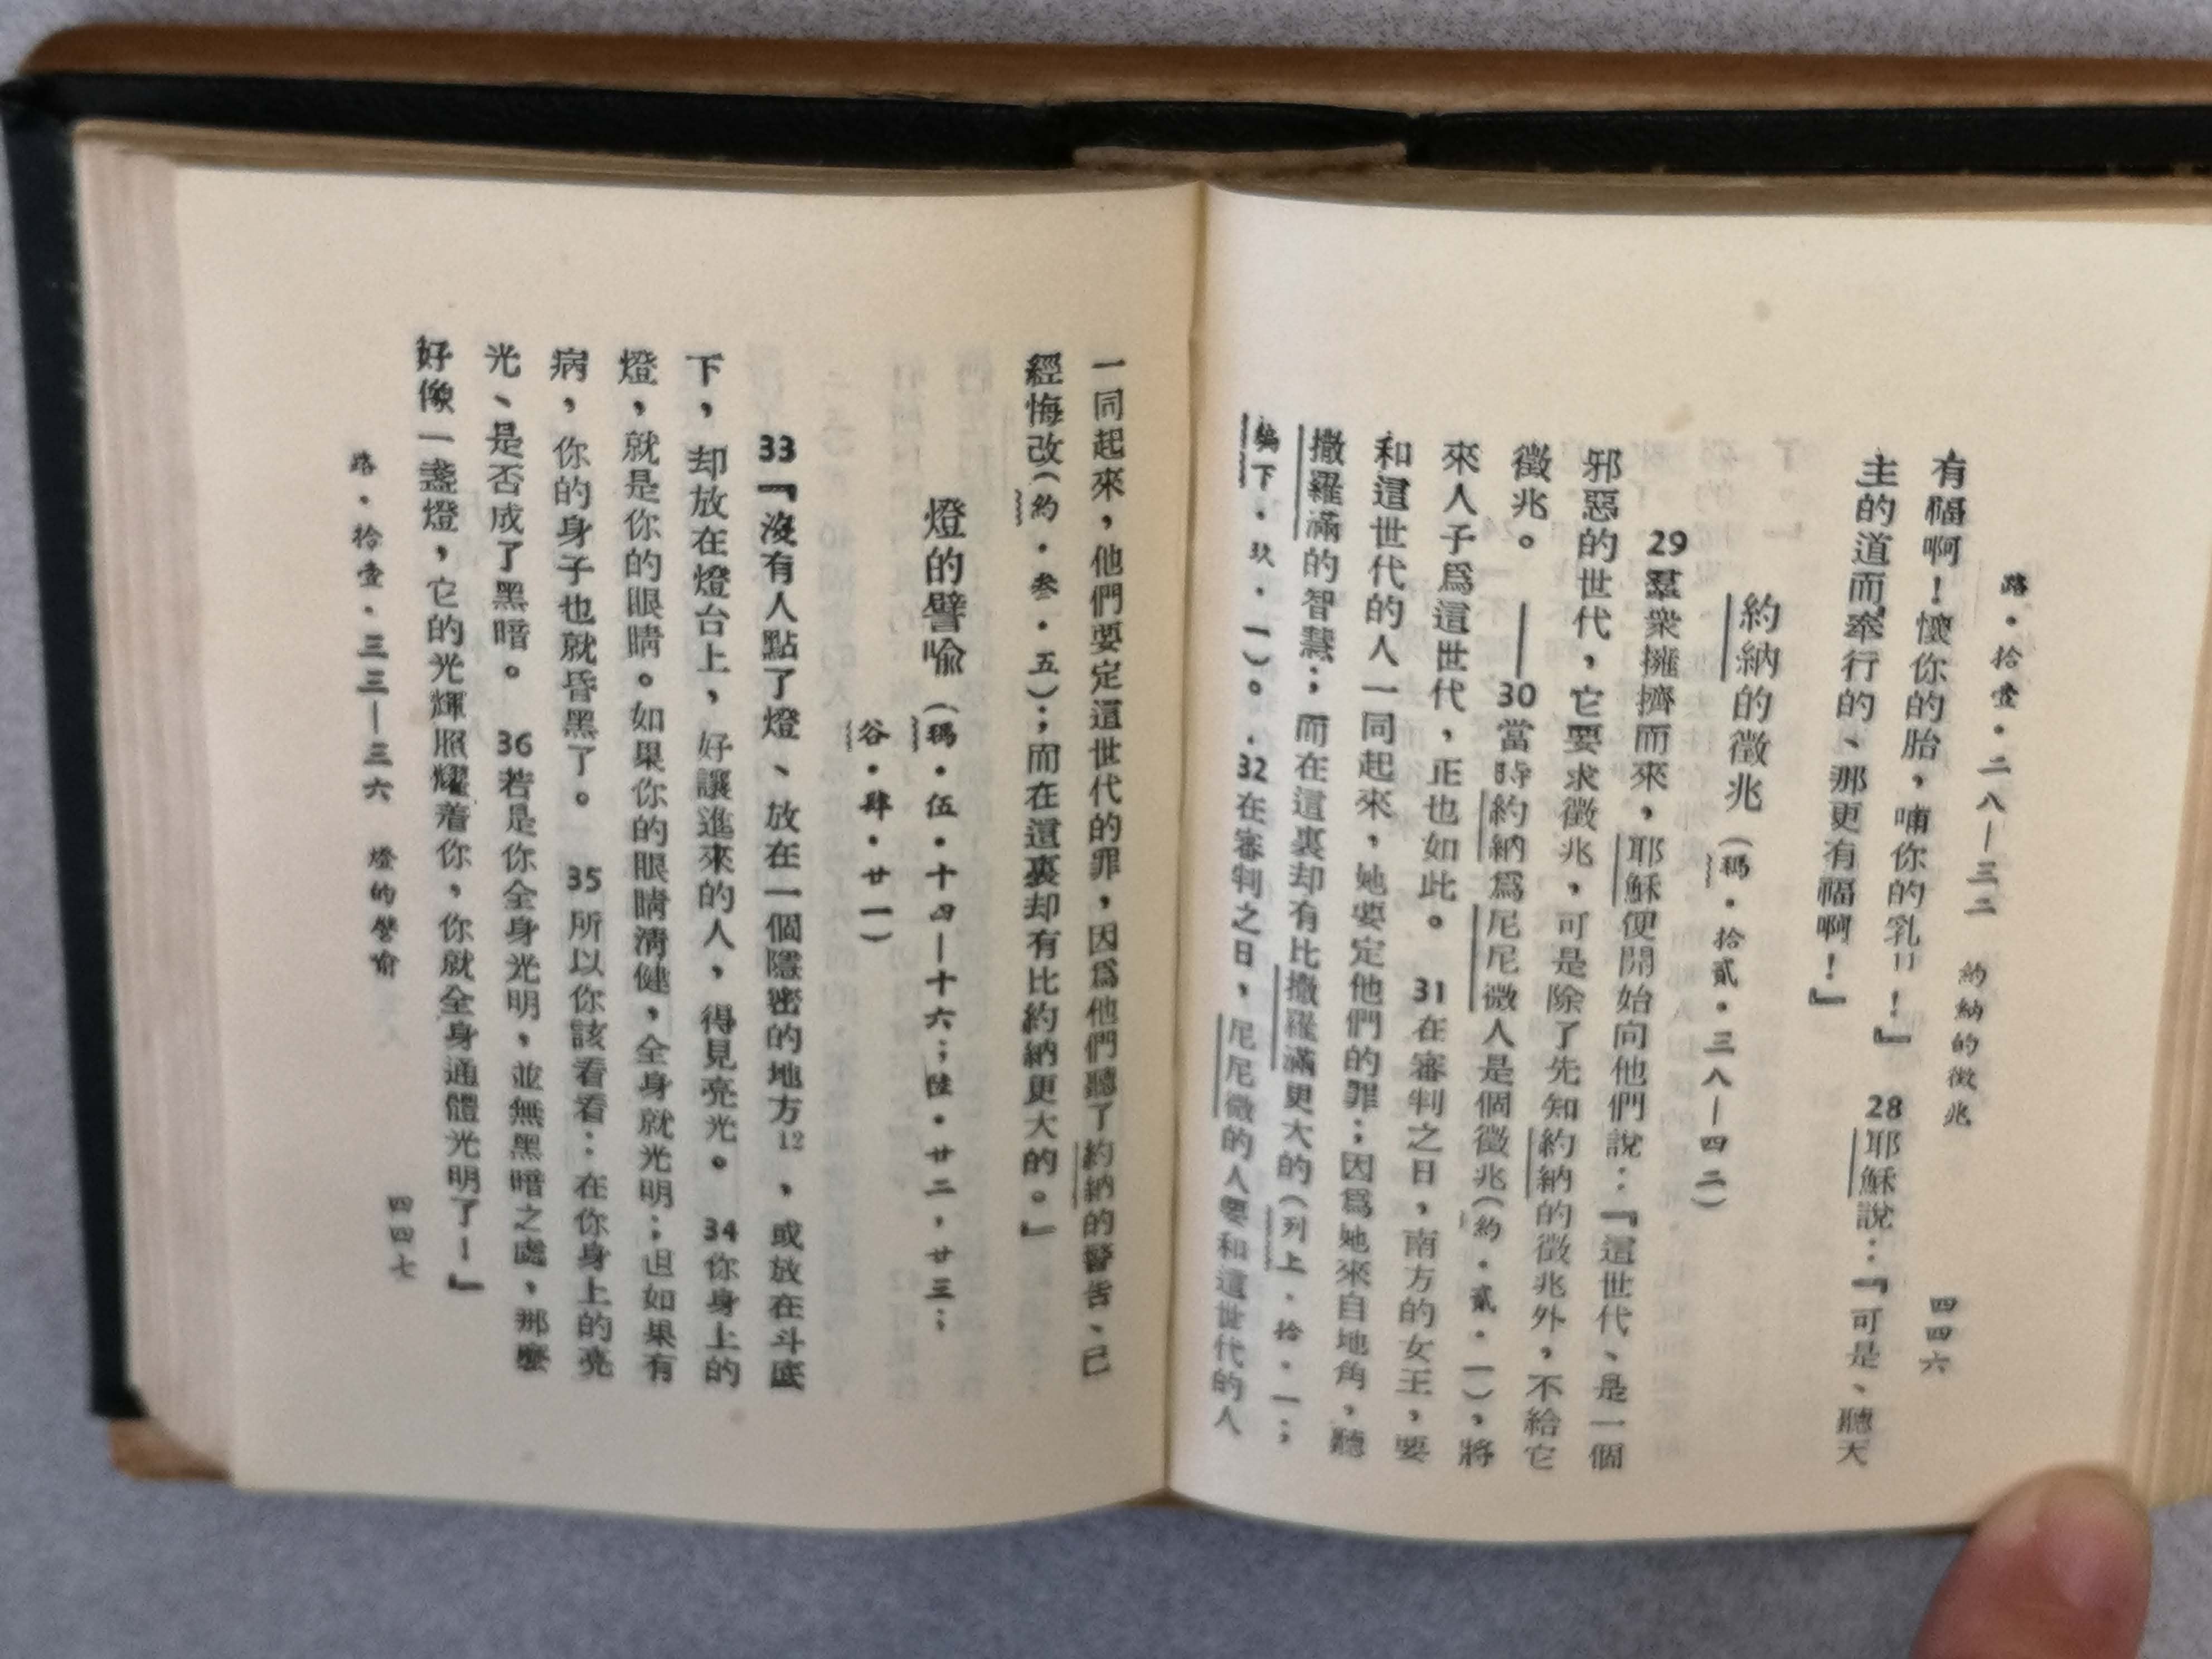 路・拾壹・二八—三二　約納的徵兆　四四六
有福啊！懷你的胎，哺你的乳11！』　28耶穌說：『可是、聽天
主的道而奉行的、那更有福啊！』
約納的徵兆（瑪・拾貳・三八—四二）
29羣衆擁擠而來，耶穌便開始向他們說：『這世代、是一個
邪惡的世代，它要求徵兆，可是除了先知約納的徵兆外，不給它
徵兆。　30當時約納爲尼尼微人是個徵兆（約・貳・一），將
來人子爲這世代，正也如此。　31在審判之日，南方的女王，要
和這世代的人一同起來，她要定他們的罪；因爲她來自地角，聽
撒羅滿的智慧；而在這裏却有比撒羅滿更大的（列上・拾・一；
編下・玖・一）。　32在審判之日，尼尼微的人要和這世代的人
一同起來，他們要定這世代的罪，因爲他們聽了約納的警告、已
經悔改（約・叁・五）；而在這裏却有比約納更大的。』
燈的譬喻（瑪・伍・十四—十六；陸・廿二，廿三；
谷・肆・廿一）
33『沒有人點了燈、放在一個隱密的地方12，或放在斗底
下，却放在燈台上，好讓進來的人，得見亮光。　34你身上的
燈，就是你的眼睛。如果你的眼睛淸健，全身就光明；但如果有
病，你的身子也就昏黑了。　35所以你該看看：在你身上的亮
光、是否成了黑暗。　36若是你全身光明，並無黑暗之處，那麼
好像一盞燈，它的光輝照耀着你，你就全身通體光明了！』
路・拾壹・三三—三六　燈的譬喻　四四七